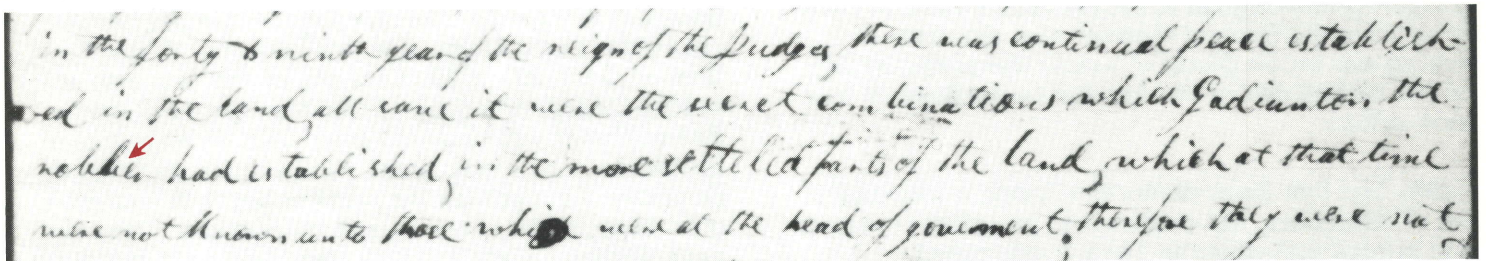 in the forty & ninth year of the reign of the Judges, there was continual peace establish-
ed in the land, all save it were the secret combinations which Gadianton the
nobler had established, in the more setteled parts of the land, which at that time
were not known unto those which were at the head of goverment, therefore they were not